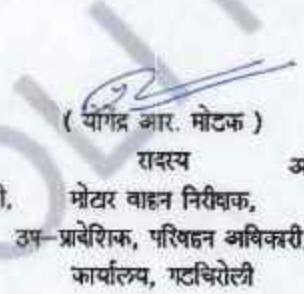 ( योगेंद्र आर. मोटक )
सदस्य
मोटार वाहन निरीक्षक,
उप-प्रादेशिक, परिवहन अधिकारी
कार्यालय, गडचिरोली